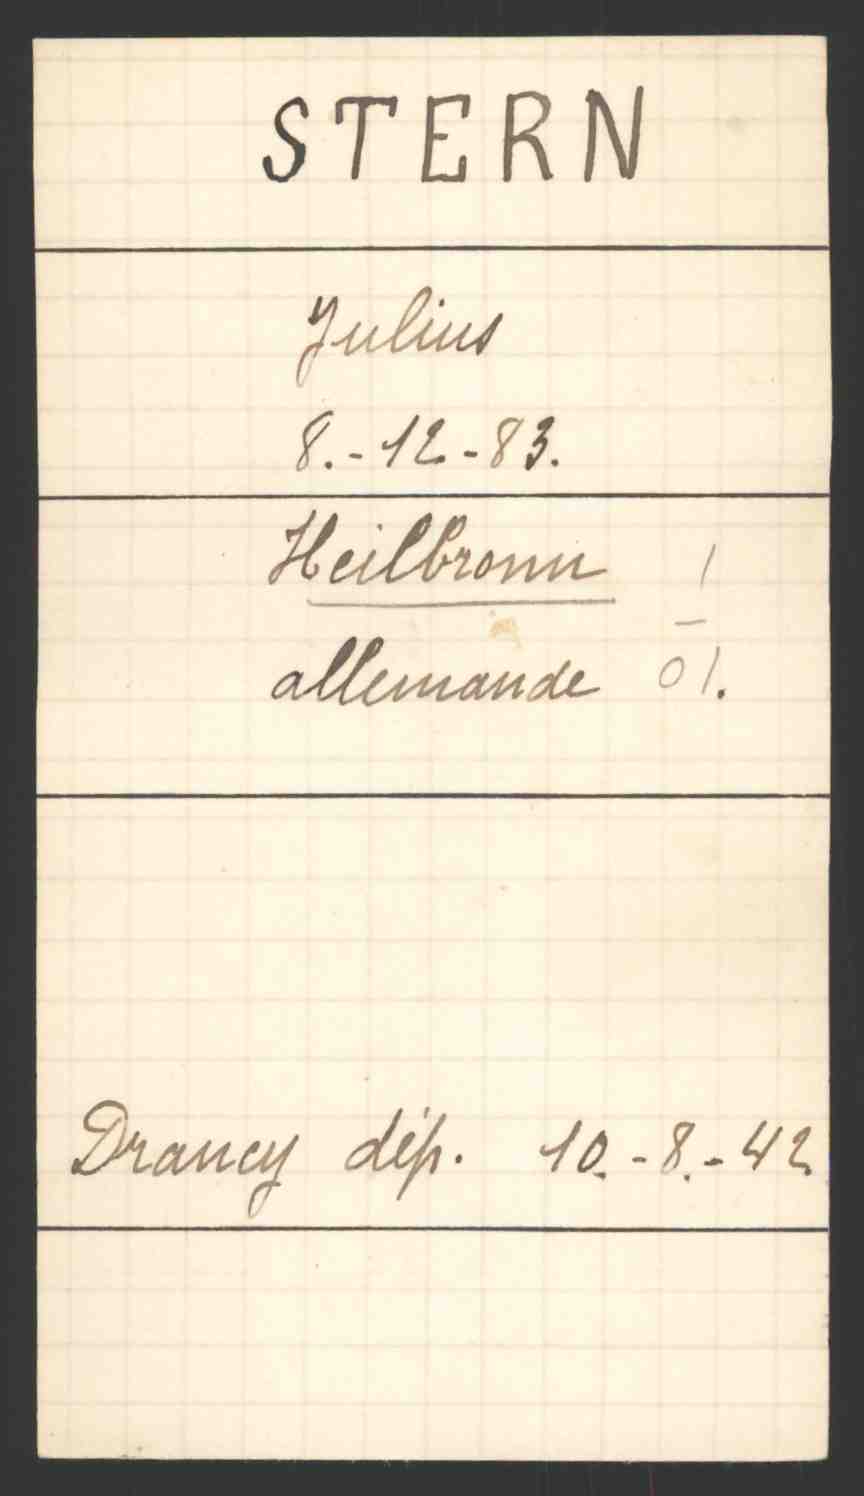 STERN
Julius
8.-12-83.
Heilbronn 1
allemande 01.
Drancy dép. 10.-8.-42